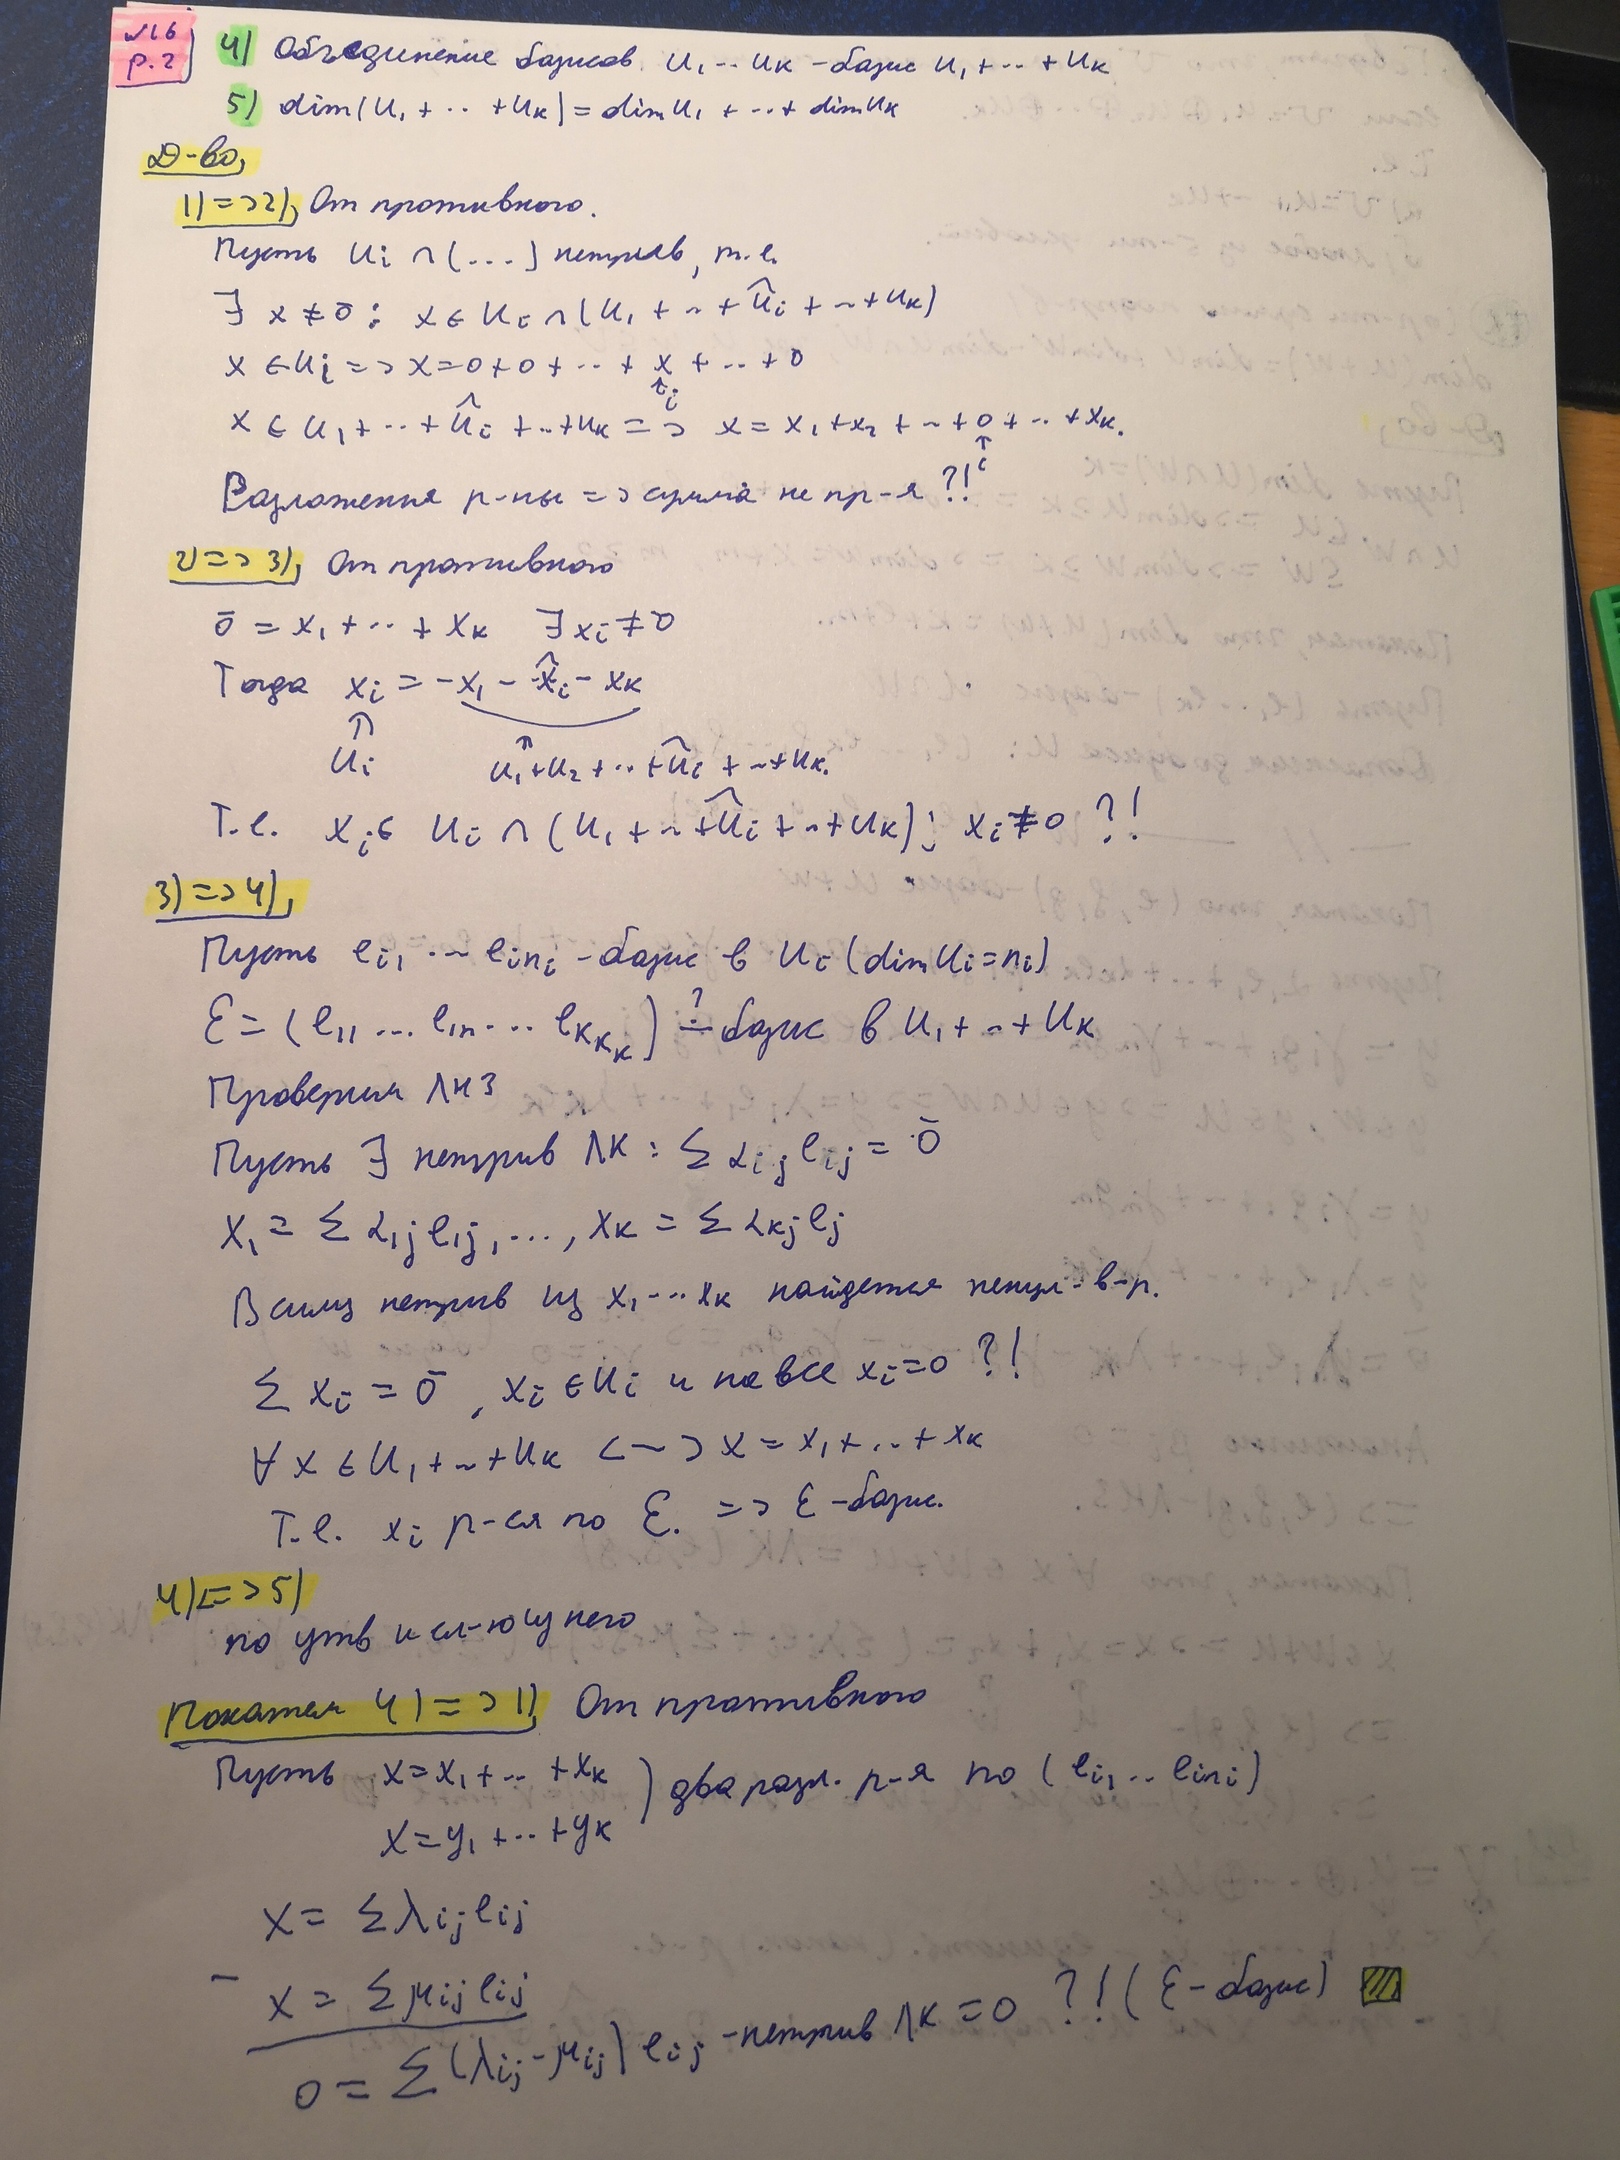 №16
р.2
4) Объединение базисов U₁...Uₖ - базис U₁+...+Uₖ
5) dim(U₁+...+Uₖ)=dimU₁+...+dimUₖ
Д-во,
1)=>2), От противного.
Пусть Uᵢ ∩(...) нетрив, т.е.
∃ x≠0̄: x∈Uᵢ∩(U₁+...+Ûᵢ+...+Uₖ)
x∈Uᵢ => x=0+0+...+x+...+0
↑i
x∈U₁+...+Ûᵢ+...+Uₖ => x=x₁+x₂+...+0+...+xₖ.
↑i
Разложения р-ны => сумма не пр-я ?!
2)=>3), От противного
0̄=x₁+...+xₖ ∃xᵢ≠0
Тогда xᵢ=-x₁-x̂ᵢ-xₖ
Uᵢ U₁+U₂+...+Ûᵢ+...+Uₖ.
Т.е. xᵢ∈Uᵢ∩(U₁+...+Ûᵢ+...+Uₖ): xᵢ≠0 ?!
3)=>4),
Пусть eᵢ₁...eᵢₙᵢ - базис в Uᵢ (dimUᵢ=nᵢ)
ℰ=(e₁₁...e₁ₙ...eₖₖₖ) -? базис в U₁+...+Uₖ
Проверим ЛНЗ
Пусть ∃ нетрив ЛК: Σαᵢⱼeᵢⱼ=0̄
x₁=Σα₁ⱼe₁ⱼ,...,xₖ=Σαₖⱼeⱼ
В силу нетрив из x₁...xₖ найдется ненул-в-р.
Σxᵢ=0̄, xᵢ∈Uᵢ и не все xᵢ=0 ?!
∀x∈U₁+...+Uₖ <~> x=x₁+...+xₖ
Т.е. xᵢ р-ся по ℰ. => ℰ-базис.
4)<=>5)
по утв и сл-ю из него
Покажем 4)=>1), От противного
Пусть x=x₁+...+xₖ ) два разл. р-я по (eᵢ₁...eᵢₙᵢ)
x=y₁+...+yₖ
x=Σλᵢⱼeᵢⱼ
- x=Σμᵢⱼeᵢⱼ
0=Σ(λᵢⱼ-μᵢⱼ)eᵢⱼ -нетрив ЛК=0 ?! (ℰ-базис)